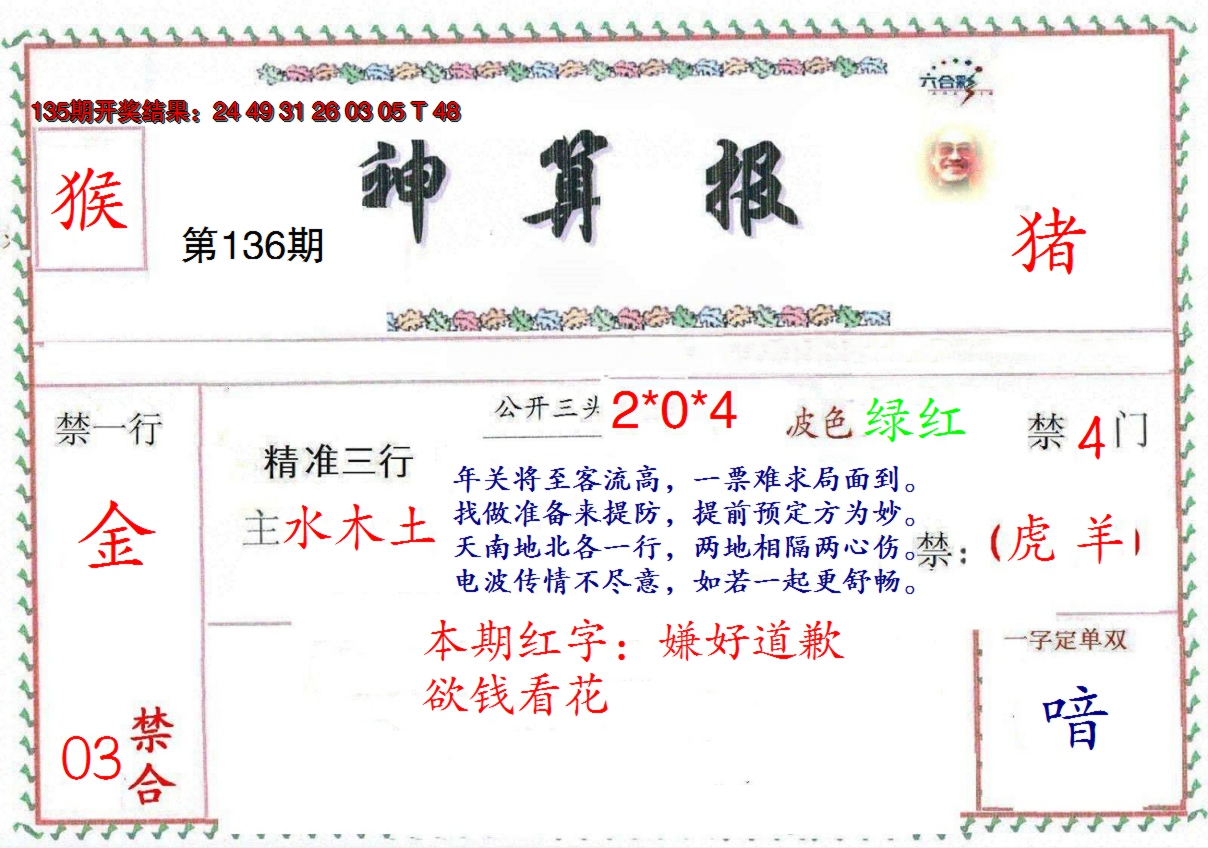 六合彩
135期开奖结果：24 49 31 26 03 05 T 48
神算报
猴
第136期
猪
禁一行
金
03
禁合
精准三行
主水木土
公开三头 2*0*4
波色 绿红
禁4门
年关将至客流高，一票难求局面到。
找做准备来提防，提前预定方为妙。
天南地北各一行，两地相隔两心伤。
电波传情不尽意，如若一起更舒畅。
禁：（虎 羊）
本期红字：嫌好道歉
欲钱看花
一字定单双
喑